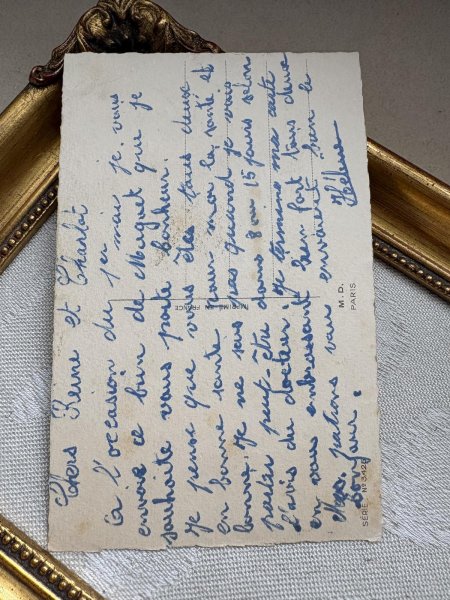 Chers Reine et Charlot
à l'occasion du 1er mai je vous
envoie ce brin de Muguet que je
souhaite vous porte bonheur.
Je pense que vous êtes tous deux
en bonne santé pour moi la santé est
bonne, Je ne sais pas quand je vais
partir peut-être dans 8 ou 15 jours selon
l'avis du docteur, je termine ma carte
en vous embrassant bien fort tous deux
Mes patans vous envoient bien le
bonjour.
Hélène
IMPRIMÉ EN FRANCE
M. D.
PARIS
SÉRIE No 5426